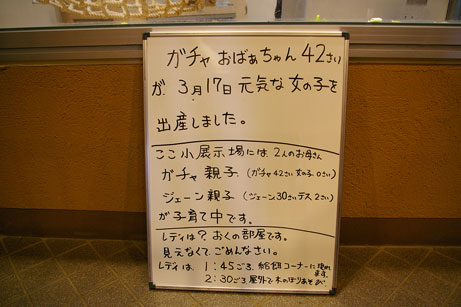 ガチャ おばぁちゃん 42さい
が 3月17日 元気な 女の子を
出産しました。
ここ小展示場には、2人のお母さん
ガチャ 親子 (ガチャ42さい 女の子 0さい)
ジェーン親子 (ジェーン30さい デス 2さい)
が子育て中です。
レディは? おくの部屋です。
見えなくて ごめんなさい。
レディは 1:45ごろ 給餌コーナーに
ます。
2:30ごろ 屋外で 木のぼりあそび